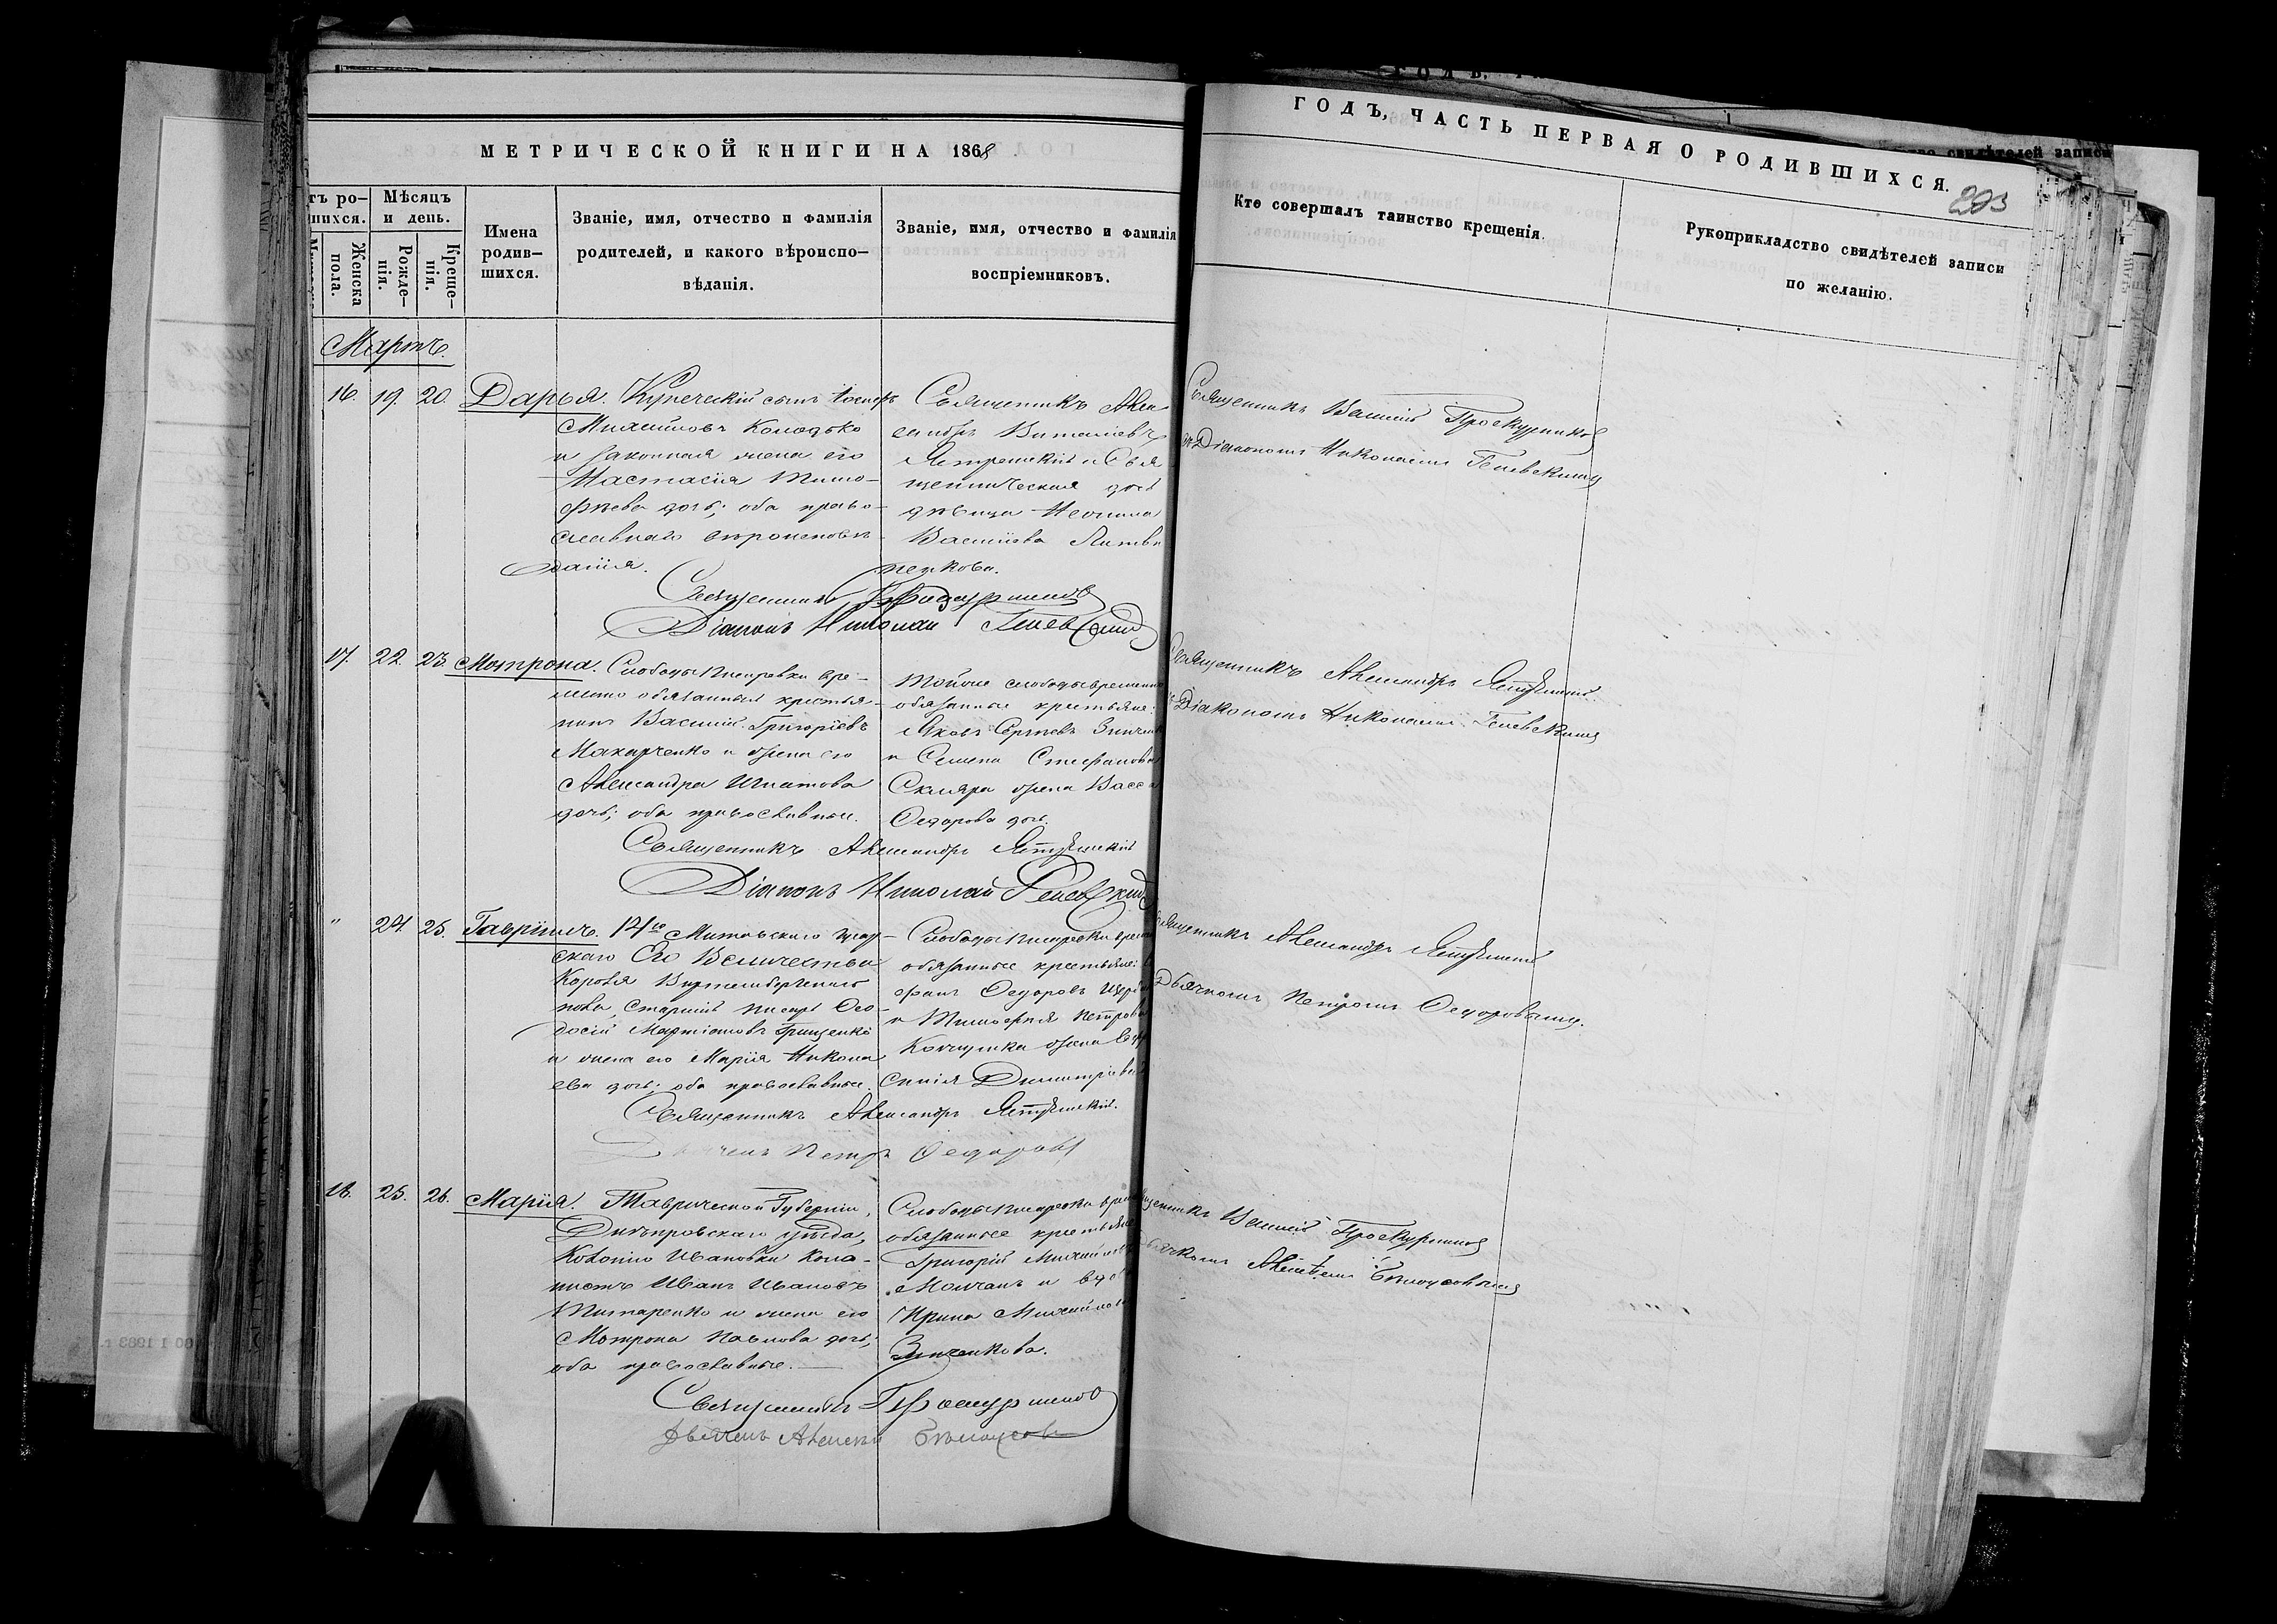 МЕТРИЧЕСКОЙ КНИГИ НА 1868
ГОДЪ, ЧАСТЬ ПЕРВАЯ О РОДИВШИХСЯ.
203
тъ ро-
шихся.
Женска
пола.
Мѣсяцъ
и день.
Рожде-
нія.
Креще-
нія.
Имена
родив-
шихся.
Званіе, имя, отчество и фамилія
родителей, и какого вѣроиспо-
вѣданія.
Званіе, имя, отчество и фамилія
воспріемниковъ.
Кто совершалъ таинство крещенія.
Рукоприкладство свидѣтелей записи
по желанію.
Мартъ.
16. 19. 20. Дарья. Купеческій сынъ
Михайловъ Колодько
и законная жена его
Настасія Тимо-
фѣева дочь; оба право-
славнаго вѣроисповѣ-
данія.
Священникъ Алек
сандръ Витальевъ
Ястремскій и Свя
щенническая дочь
дѣвица Неонила
Васильева Литви
ненкова.
Священникъ Василій Проскурников
Діакономъ Николаемъ Геневскимъ
Священникъ Проскурниковъ
Діаконъ Николай Геневскій
17. 22. 23. Мотрона. Слободы Писаревки вре-
менно обязанный крестья-
нинъ Василій Григоріевъ
Макарченко и жена его
Александра Игнатова
дочь; оба православные.
Тойже слободы временно
обязанные крестьяне:
Яковъ Сергѣевъ Зинченк
и Семена Стефанова
Скляра жена Васса
Ѳедорова дочь.
Священникъ Александръ Ястремскій
Діакономъ Николаемъ Геневскимъ
Священникъ Александръ Ястремскій
Діаконъ Николай Геневскій
" 24. 25. Гавріилъ. 14го Митавскаго гусар-
скаго Его Величества
Короля Виртембергскаго
полка, старшій писарь Ѳео-
досій Мартіановъ Грищенко
и жена его Марія Никола
ева дочь; оба православные.
Слободы Писаревки времен
обязанные крестьяне:
фанъ Ѳедоровъ
и Тимофея Петрова
жена
Димитріева
Священникъ Александръ Ястремскій
Дьячкомъ Петромъ Ѳедоровымъ.
Священникъ Александръ Ястремскій.
Дьячекъ Петръ Ѳедоровъ
18. 25. 26. Марія. Таврической Губерніи,
Днѣпровскаго уѣзда,
Колоніи Ивановки Коло-
нистъ Иванъ Ивановъ
Титаренко и жена его
Мотрона Павлова дочь;
оба православные.
Слободы Писаревки врем
обязанные крестьяне
Григорій Михайловъ
Молчанъ и вдо
Ирина Михайлова
Зинченкова.
щенникъ Василій Проскурников
ячкомъ Алексѣемъ Бѣлоусовымъ
Священникъ Проскурниковъ
Дьячекъ Алексѣй Бѣлоусовъ